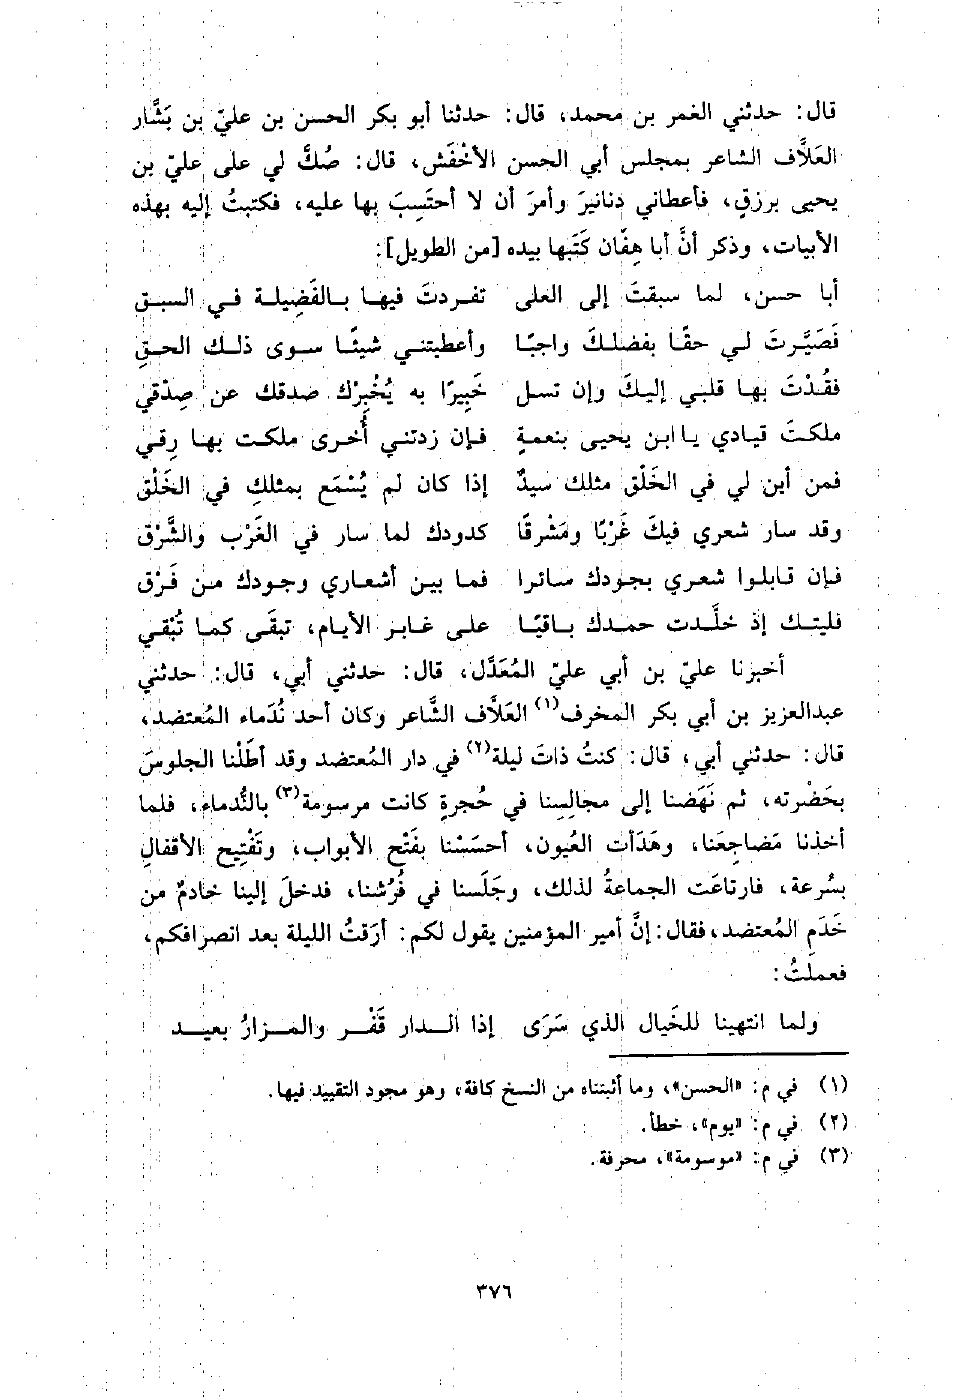 قال: حدثني الغمر بن محمد، قال: حدثنا أبو بكر الحسن بن عليّ بن بَشَّار
العَلَّاف الشاعر بمجلس أبي الحسن الأخْفَش، قال: صُكَّ لي على عليّ بن
يحيى برزقٍ، فأعطاني دنانيرَ وأمرَ أن لا أحتَسِبَ بها عليه، فكتبتُ إليه بهذه
الأبيات، وذكر أنَّ أبا هِفَّان كَتَبها بيده [من الطويل]:
أبا حسن، لما سبقتَ إلى العلى تفردتَ فيها بالفَضِيلة في السبق
فَصَيَّرتَ لي حقًا بفضلكَ واجبًا وأعطيتني شيئًا سوى ذلك الحقِ
فقُدْتَ بها قلبي إليكَ وإن تسل خَبِيرًا به يُخْبِرْك صدقك عن صِدْقي
ملكتَ قيادي يا ابن يحيى بنعمةٍ فإن زدتني أُخرى ملكت بها رِقي
فمن أين لي في الخَلْق مثلك سيدٌ إذا كان لم يُسْمَع بمثلكِ في الخَلْق
وقد سار شعري فيكَ غَرْبًا ومَشْرقًا كدودك لما سار في الغَرْب والشَّرْق
فإن قابلوا شعري بجودك سائرا فما بين أشعاري وجودك من فَرْق
فليتك إذ خلَّدت حمدك باقيًا على غابر الأيام، تبقَى كما تُبْقي
أخبرنا عليّ بن أبي عليّ المُعَدَّل، قال: حدثني أبي، قال: حدثني
عبدالعزيز بن أبي بكر المخرف(١) العَلَّاف الشَّاعر وكان أحد نُدَماء المُعتضد،
قال: حدثني أبي، قال: كنتُ ذاتَ ليلة(٢) في دار المُعتضد وقد أطَلْنا الجلوسَ
بحَضْرته، ثم نَهَضنا إلى مجالِسِنا في حُجرةٍ كانت مرسومة(٣) بالنُّدماء، فلما
أخذنا مَضاجِعَنا، وهَدَأت العُيون، أحسَسْنا بفَتْح الأبواب، وتَفْتِيح الأقفالِ
بسُرعة، فارتاعَت الجماعةُ لذلك، وجَلَسنا في فُرُشنا، فدخلَ إلينا خادمٌ من
خَدَمِ المُعتضد، فقال: إنَّ أمير المؤمنين يقول لكم: أرَقتُ الليلة بعد انصرافكم،
فعملتُ:
ولما انتهينا للخَيال الذي سَرَى إذا الدار قَفْر والمزارُ بعيد
(١) في م: «الحسن»، وما أثبتناه من النسخ كافة، وهو مجود التقييد فيها.
(٢) في م: «يوم»، خطأ.
(٣) في م: «موسومة»، محرفة.
٣٧٦